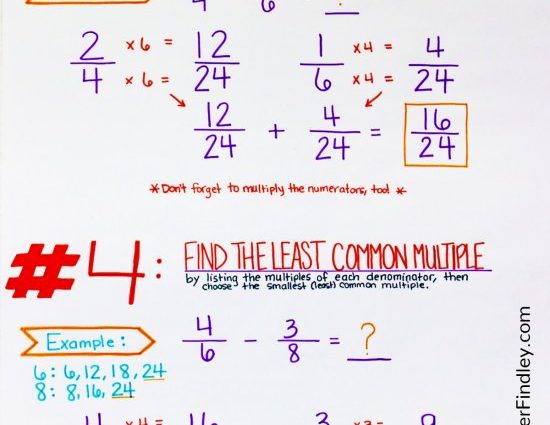 2/4 ×6 = ×6 = 12/24 1/6 ×4 = ×4 = 4/24
12/24 + 4/24 = 16/24
*Don't forget to multiply the numerators, too! *
#4: FIND THE LEAST COMMON MULTIPLE
by listing the multiples of each denominator, then
choose the smallest (least) common multiple.
Example: 4/6 - 3/8 = ?
6: 6, 12, 18, 24
8: 8, 16, 24
erFindley.com